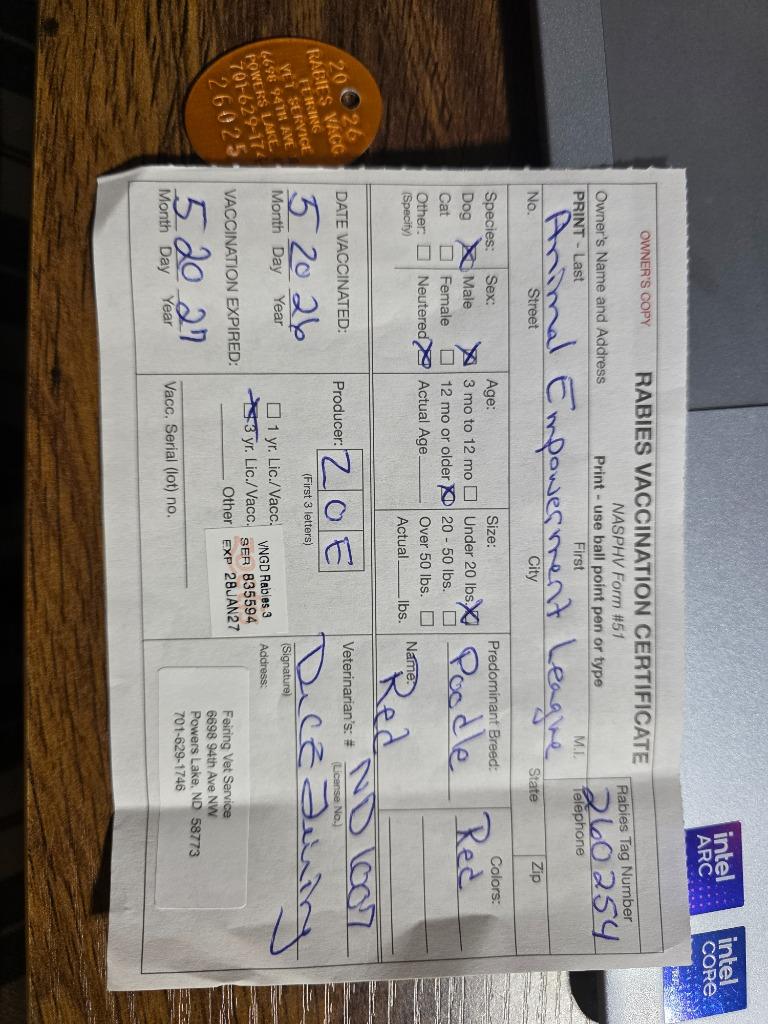 OWNER'S COPY
RABIES VACCINATION CERTIFICATE
NASPHV Form #51
Rabies Tag Number
260254
Owner's Name and Address
Print - use ball point pen or type
PRINT - Last
First
M.I.
Telephone
Animal Empowerment League
No.
Street
City
State
Zip
Species:
Dog
Cat
Other:
(Specify)
Sex:
Male
Female
Neutered
Age:
3 mo to 12 mo
12 mo or older
Actual Age
Size:
Under 20 lbs.
20 - 50 lbs.
Over 50 lbs.
Actual lbs.
Predominant Breed:
Poodle
Name:
Red
Colors:
Red
DATE VACCINATED:
5 20 26
Month Day Year
VACCINATION EXPIRED:
5 20 27
Month Day Year
Producer: ZOE
(First 3 letters)
1 yr. Lic./Vacc.
3 yr. Lic./Vacc.
Other
VNGD Rabies 3
SER 835594
EXP 28JAN27
Vacc. Serial (lot) no.
Veterinarian's: # ND 1007
(License No.)
(Signature)
Address:
Feiring Vet Service
6698 94th Ave NW
Powers Lake, ND 58773
701-629-1746
2026
RABIES VACC
FEIRING
VET SERVICE
6698 94TH AVE
POWERS LAKE
701-629-17
26025
intel
ARC
intel
CORE